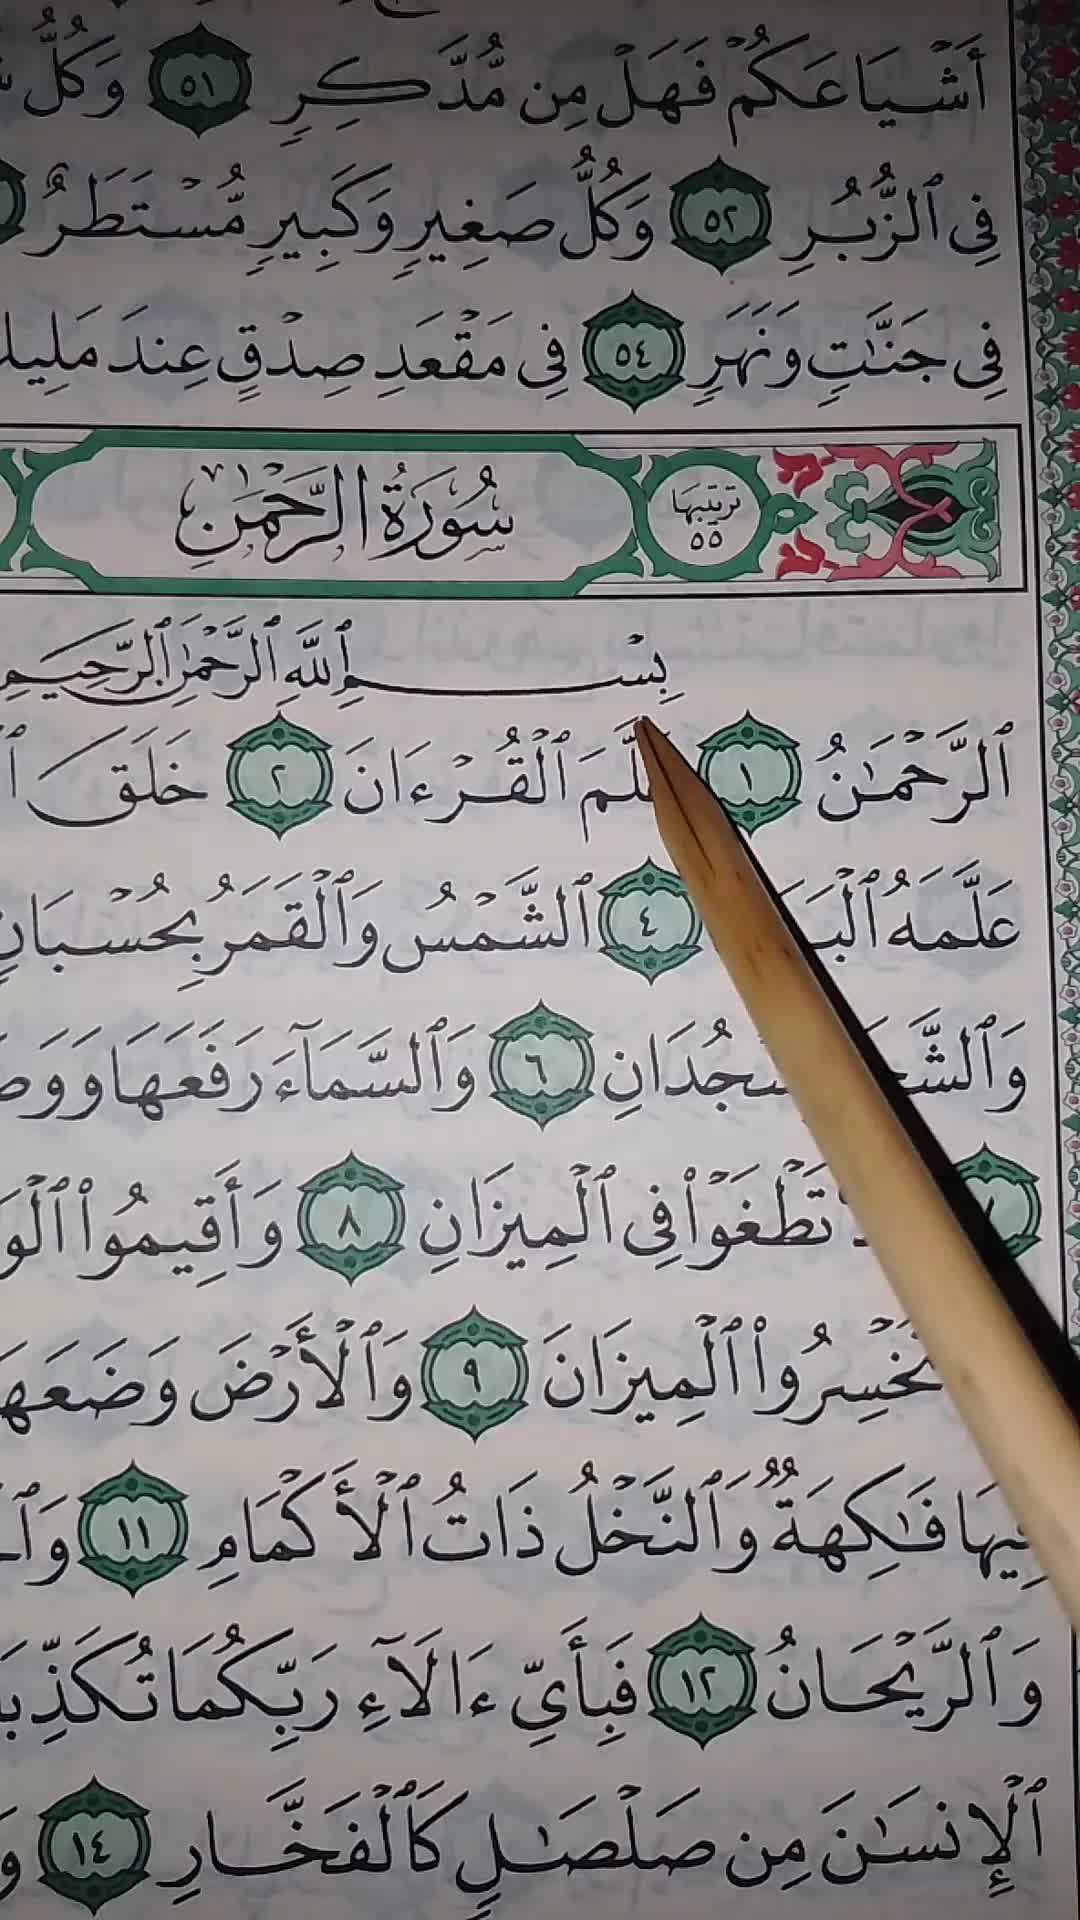 أَشْيَاعَكُمْ فَهَلْ مِن مُّدَّكِرٍ ٥١ وَكُلُّ
فِى ٱلزُّبُرِ ٥٢ وَكُلُّ صَغِيرٍ وَكَبِيرٍ مُّسْتَطَرٌ
فِى جَنَّٰتٍ وَنَهَرٍ ٥٤ فِى مَقْعَدِ صِدْقٍ عِندَ
ترتيبها ٥٥ سُورَةُ الرَّحْمَٰن
بِسْمِ ٱللَّهِ ٱلرَّحْمَٰنِ ٱلرَّحِيمِ
ٱلرَّحْمَٰنُ ١ عَلَّمَ ٱلْقُرْءَانَ ٢ خَلَقَ
عَلَّمَهُ ٤ ٱلشَّمْسُ وَٱلْقَمَرُ بِحُسْبَانٍ
٦ وَٱلسَّمَآءَ رَفَعَهَا
تَطْغَوْا۟ فِى ٱلْمِيزَانِ ٨ وَأَقِيمُوا۟
ٱلْمِيزَانَ ٩ وَٱلْأَرْضَ
فِيهَا فَٰكِهَةٌ وَٱلنَّخْلُ ذَاتُ ٱلْأَكْمَامِ ١١
وَٱلرَّيْحَانُ ١٢ فَبِأَىِّ ءَالَآءِ رَبِّكُمَا
ٱلْإِنسَٰنَ مِن صَلْصَٰلٍ كَٱلْفَخَّارِ ١٤